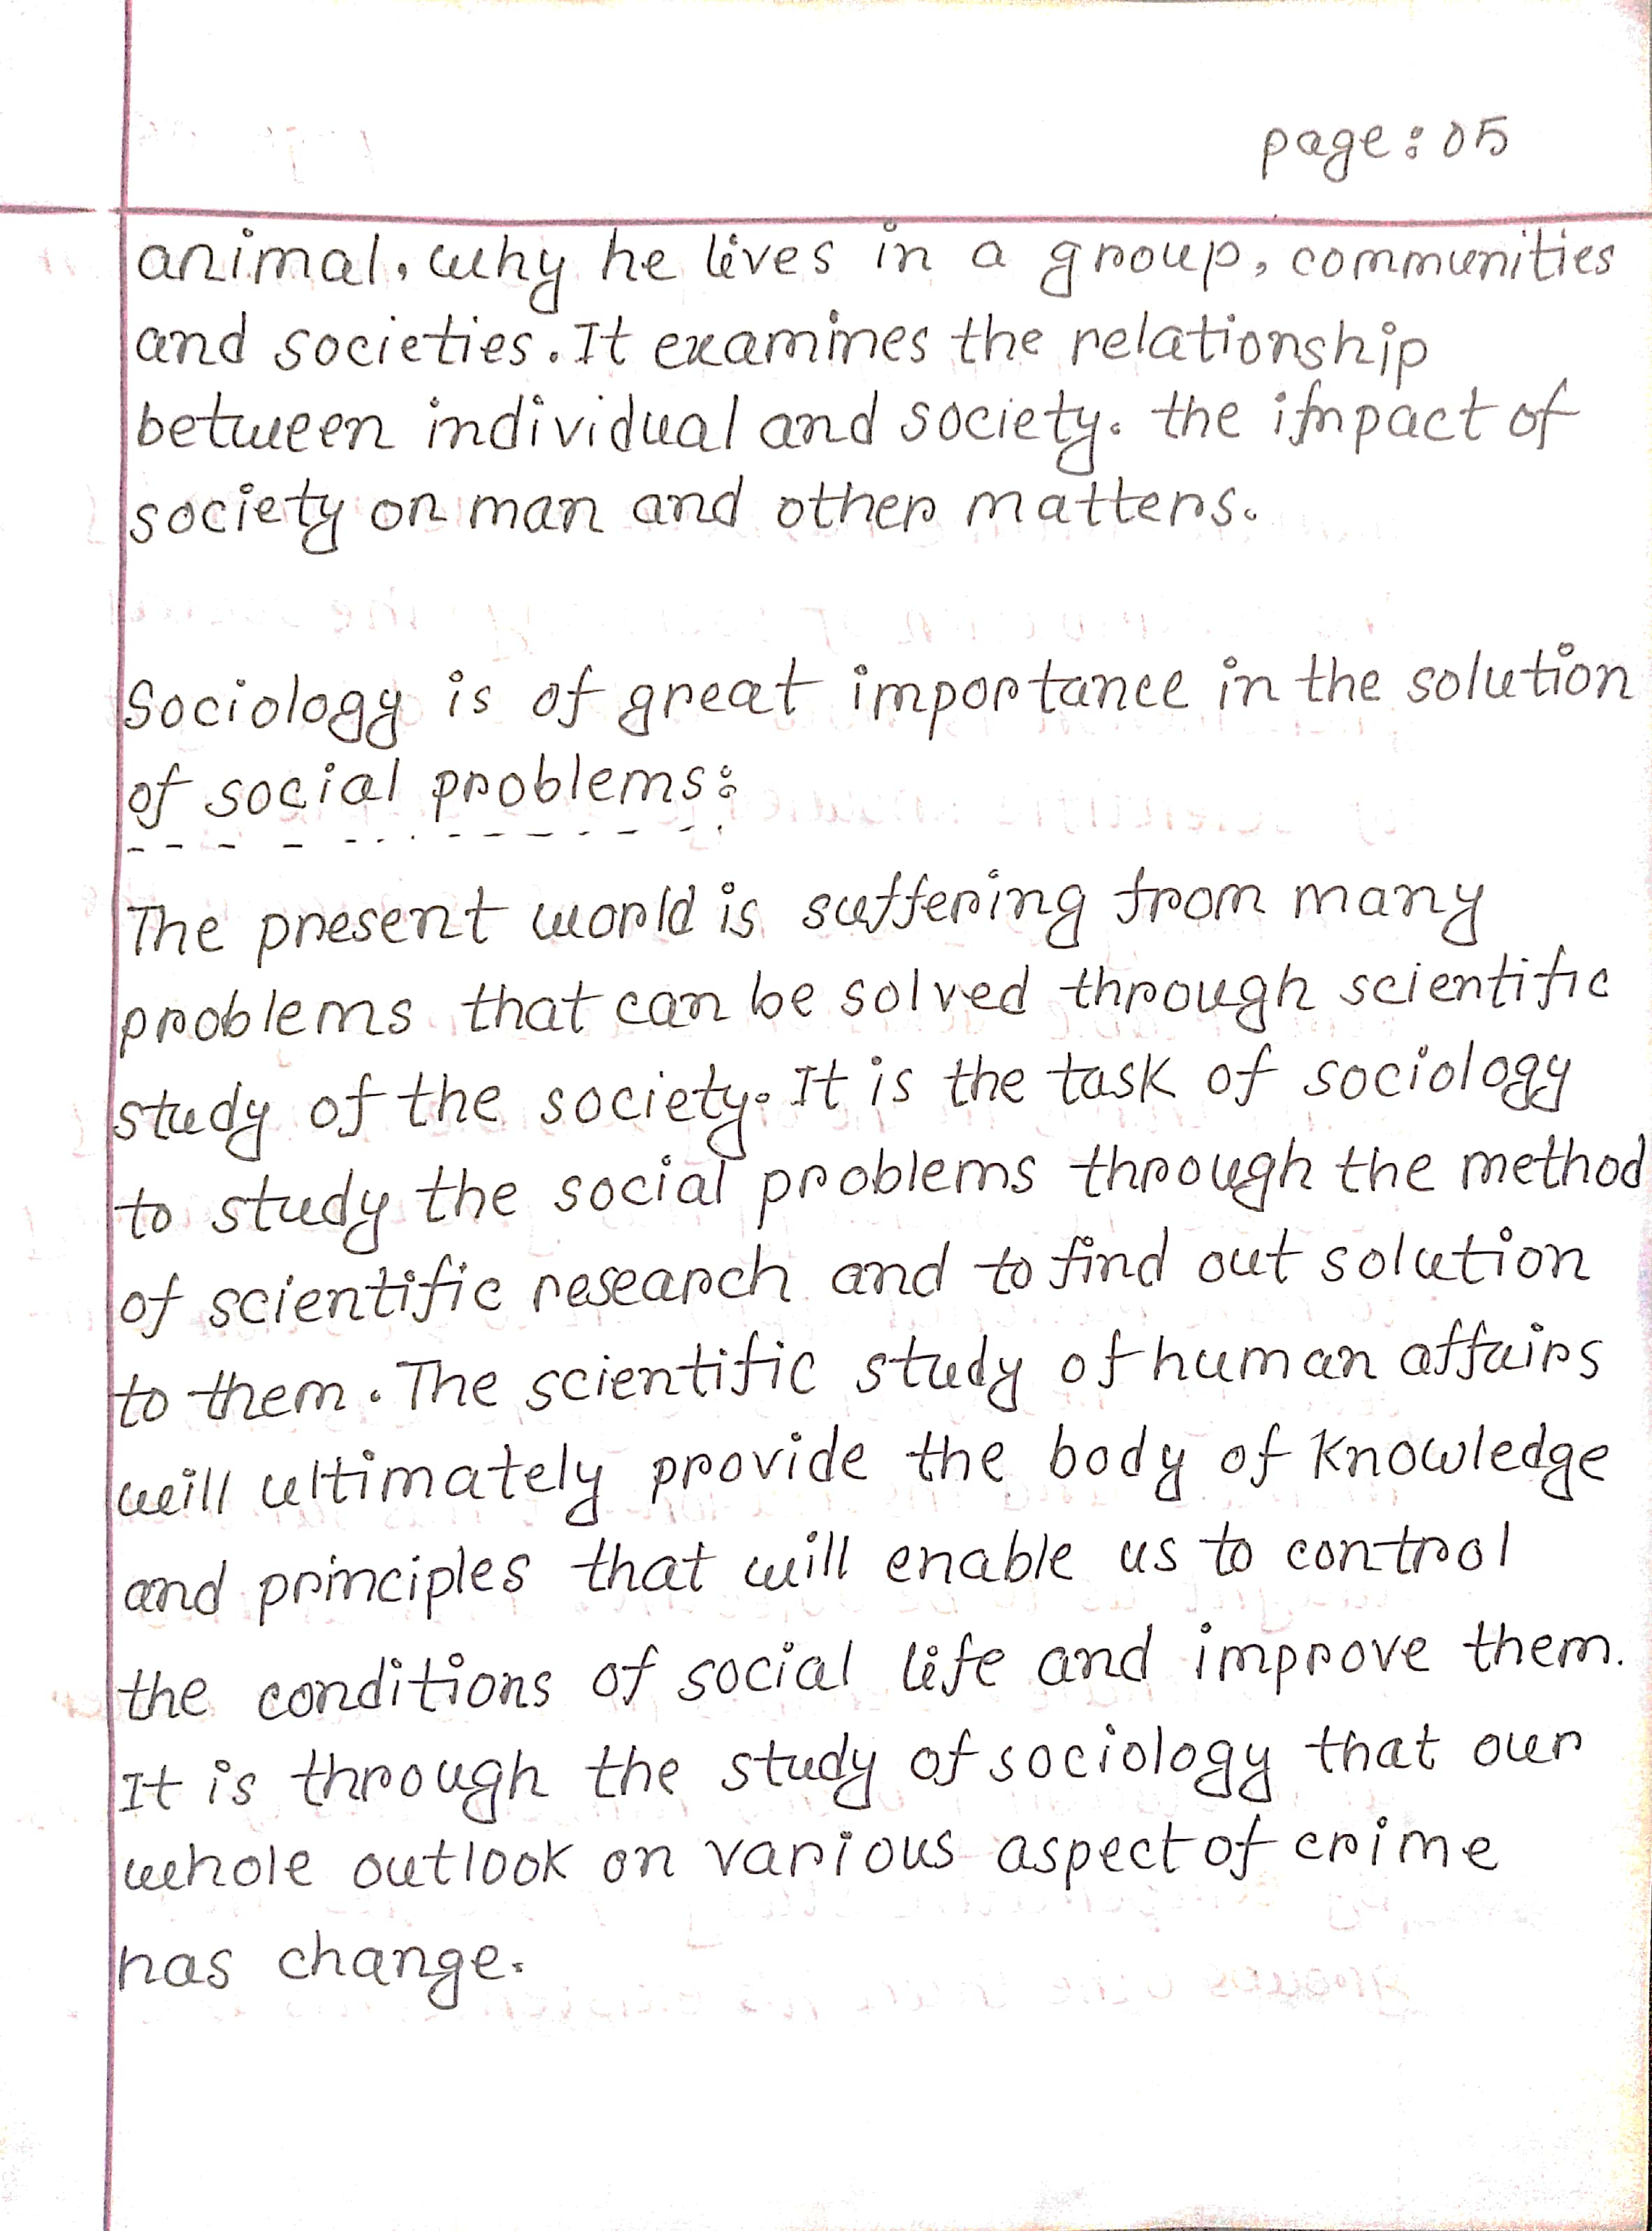 page: 05
animal, why he lives in a group, communities
and societies. It examines the relationship
between individual and society. the impact of
society on man and other matters.
Sociology is of great importance in the solution
of social problems:
The present world is suffering from many
problems that can be solved through scientific
study of the society. It is the task of sociology
to study the social problems through the method
of scientific research and to find out solution
to them. The scientific study of human affairs
will ultimately provide the body of knowledge
and principles that will enable us to control
the conditions of social life and improve them.
It is through the study of sociology that our
whole outlook on various aspect of crime
has change.